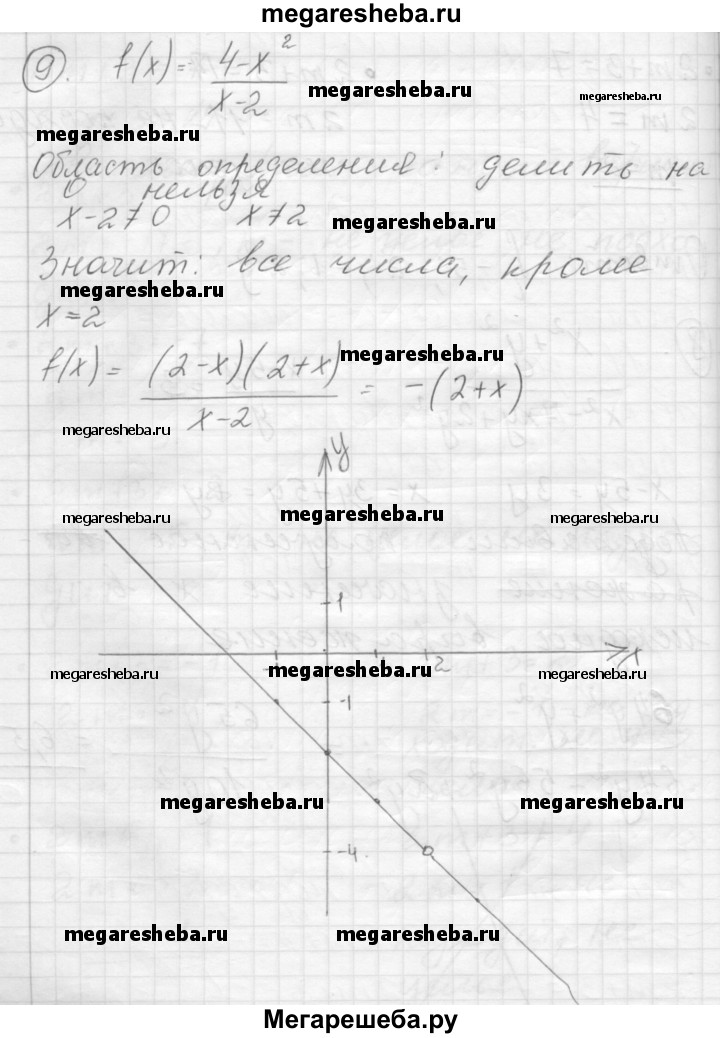 megaresheba.ru
9). f(x) = (4-x²)/(x-2)
megaresheba.ru
megaresheba.ru
megaresheba.ru
Область определения: делить на
0 нельзя
x-2≠0 x≠2
megaresheba.ru
Значит: все числа, кроме
megaresheba.ru
x=2
megaresheba.ru
f(x) = ((2-x)(2+x))/(x-2) = -(2+x)
megaresheba.ru
y
megaresheba.ru megaresheba.ru megaresheba.ru
1
2 x
megaresheba.ru megaresheba.ru megaresheba.ru
-1
megaresheba.ru megaresheba.ru
-4
megaresheba.ru megaresheba.ru
Мегарешеба.ру